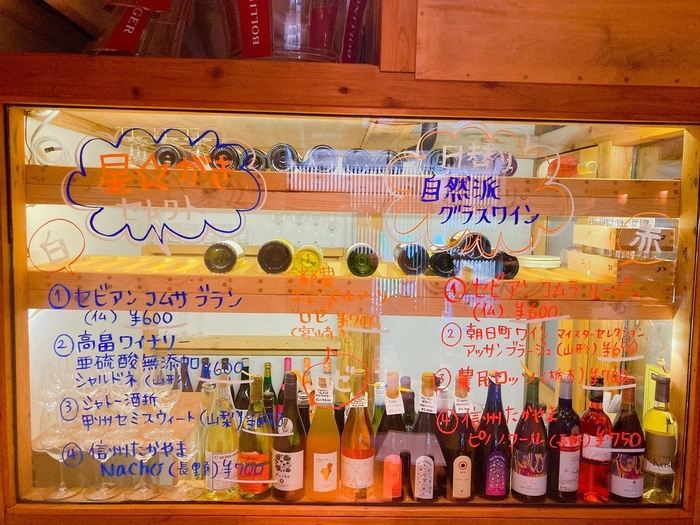 BOLLIN
BOLLIN
セレクト
日替り
自然派
グラスワイン
白
① セビアン コムサ ブラン
(仏) ¥600
② 高畠ワイナリー
亜硫酸無添加 ¥600
シャルドネ (山形)
③ シャトー酒折
甲州セミスウィート (山梨)
④ 信州たかやま
Nacho (長野) ¥700
ロゼ
(宮崎)
赤
① セビアン コムサ
(仏) ¥600
② 朝日町ワイン マイスターセレクション
アッサンブラージュ (山形) ¥650
③ 農民ロッソ (栃木)
④ 信州たかやま
ピノ・ノワール (長野) ¥750